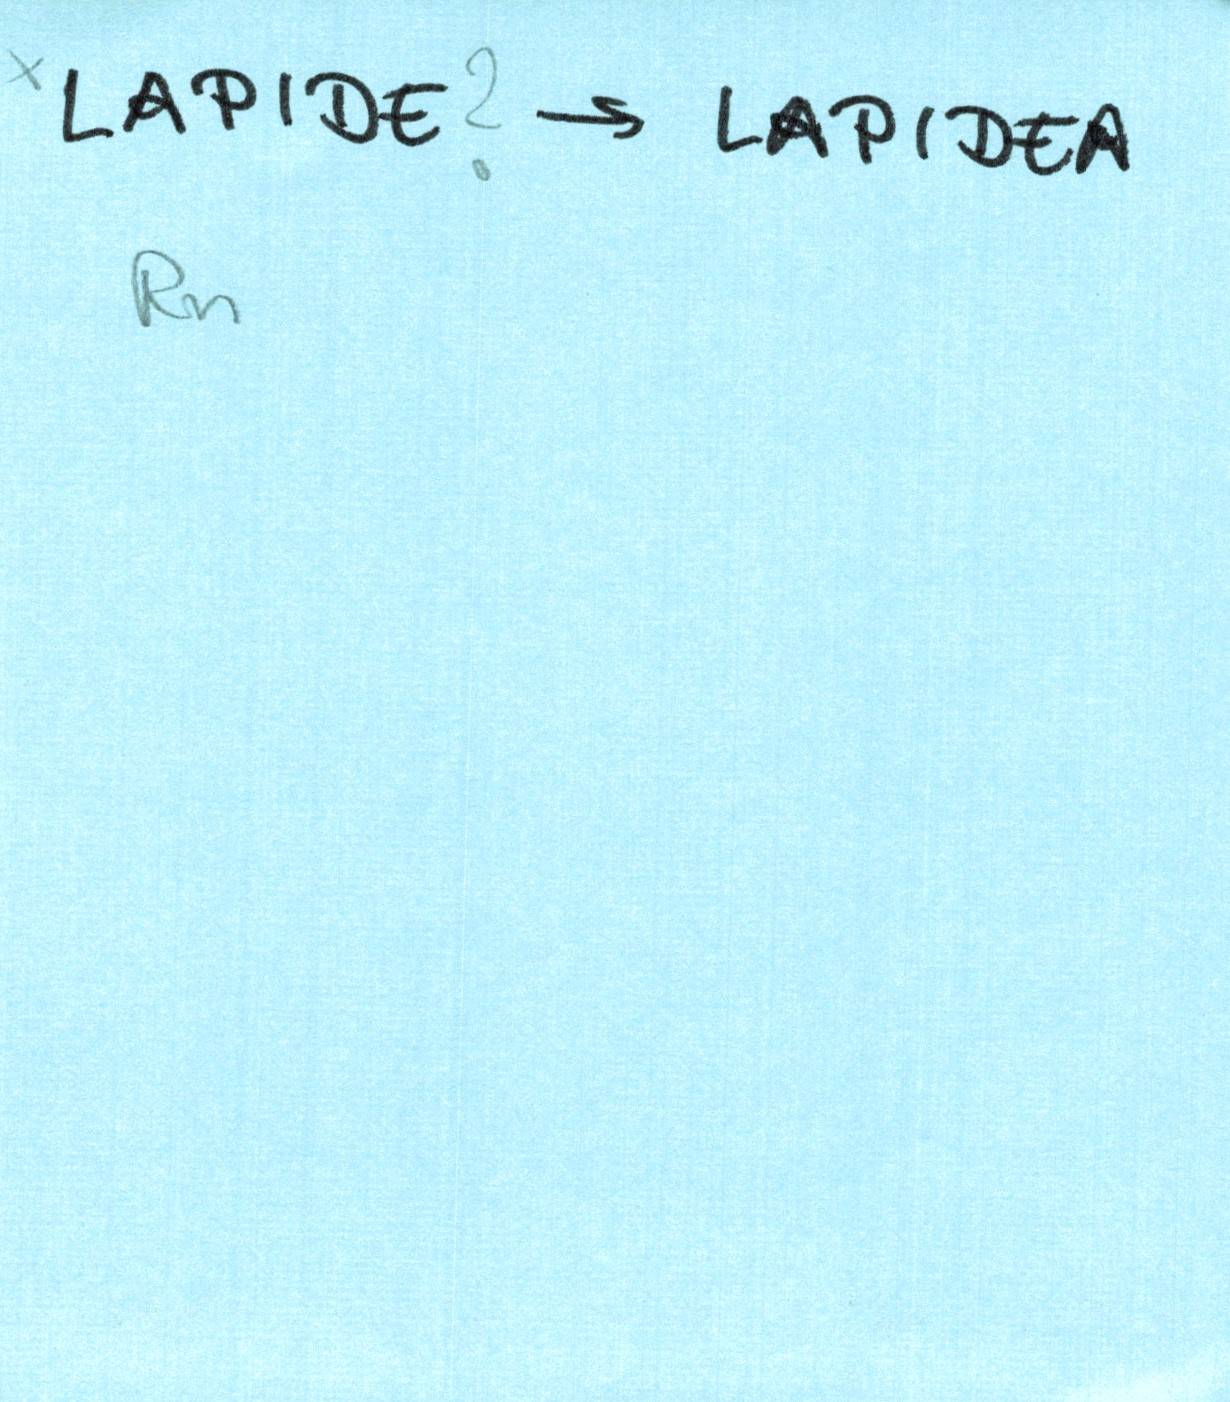 x LAPIDE? → LAPIDEA
Rn